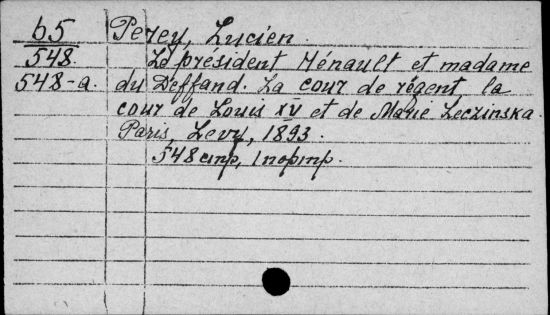 65 Perey, Lucien.
548. Le président Hénault et madame
548-a. du Deffand. La cour de régent, la
cour de Louis XV et de Marie Leczinska.
Paris, Levy, 1893.
548 стр., 1 портр.